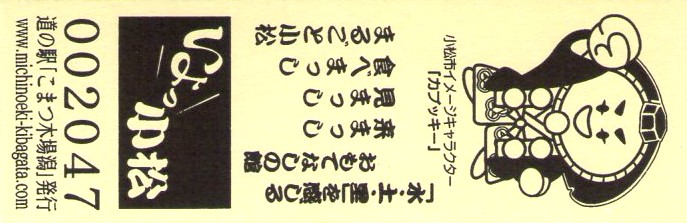 「水・土・里」を感じる
おもてなしの館
来まっし
見まっし
食べまっし
まるごと小松
小松市イメージキャラクター
「カブッキー」
いよっ小松
002047
道の駅「こまつ木場潟」発行
www.michinoeki-kibagata.com